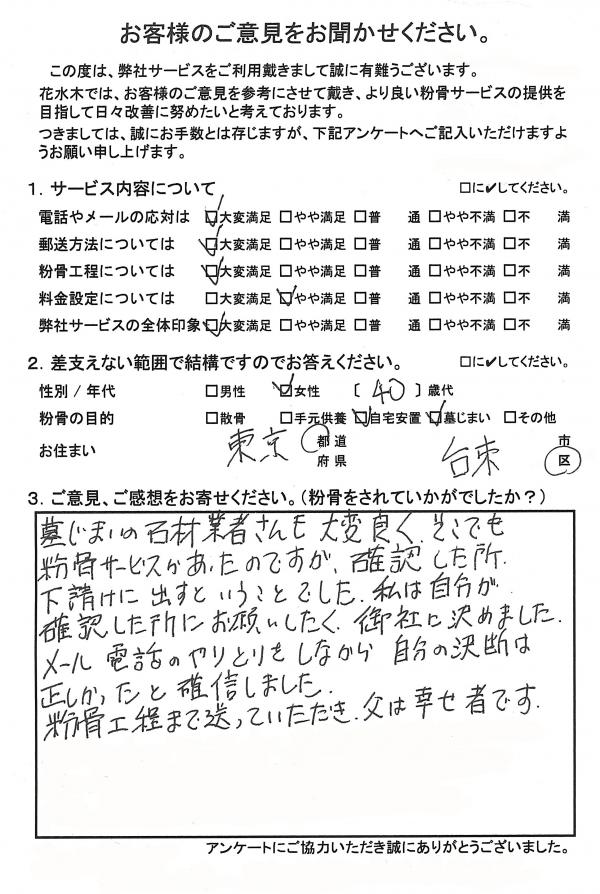 お客様のご意見をお聞かせください。
この度は、弊社サービスをご利用戴きまして誠に有難うございます。
花水木では、お客様のご意見を参考にさせて戴き、より良い粉骨サービスの提供を
目指して日々改善に努めたいと考えております。
つきましては、誠にお手数とは存じますが、下記アンケートへご記入いただけますよ
うお願い申し上げます。
1．サービス内容について □に✔してください。
電話やメールの応対は ☑大変満足 □やや満足 □普 通 □やや不満 □不 満
郵送方法については ☑大変満足 □やや満足 □普 通 □やや不満 □不 満
粉骨工程については ☑大変満足 □やや満足 □普 通 □やや不満 □不 満
料金設定については □大変満足 ☑やや満足 □普 通 □やや不満 □不 満
弊社サービスの全体印象 ☑大変満足 □やや満足 □普 通 □やや不満 □不 満
2．差支えない範囲で結構ですのでお答えください。 □に✔してください。
性別 / 年代 □男性 ☑女性 〔 40 〕歳代
粉骨の目的 □散骨 □手元供養 ☑自宅安置 ☑墓じまい □その他
お住まい 東京 都 道 府 県 台東 市 区
3．ご意見、ご感想をお寄せください。（粉骨をされていかがでしたか？）
墓じまいの石材業者さんも大変良く、そこでも
粉骨サービスがあったのですが、確認した所
下請けに出すということでした。私は自分が
確認した所にお願いしたく、御社に決めました。
メール 電話のやりとりをしながら 自分の決断は
正しかったと確信しました。
粉骨工程まで送っていただき、父は幸せ者です。
アンケートにご協力いただき誠にありがとうございました。